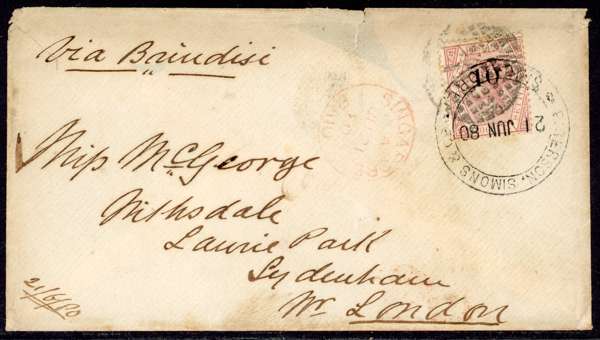 Via Brindisi
Miss McGeorge
Nithsdale
Lawrie Park
Sydenham
Nr. London
21/6/80
21 JUN 80
SIMONS & Co
10